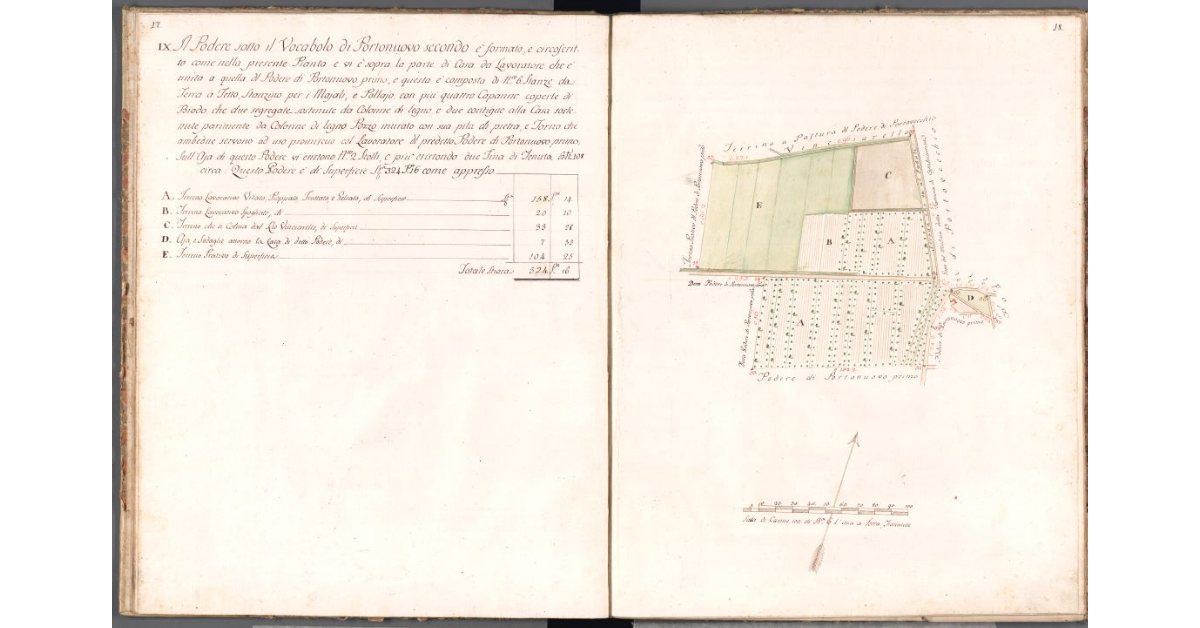 17.
IX. Il Podere sotto il Vocabolo di Portonuovo secondo e' formato, e circoscrit-
to come nella presente Pianta e vi e' sopra la parte di Casa da Lavoratore che e'
unita a quella del Podere di Portonuovo primo, e questa e' composta di N.º 6 Stanze da
Terra a Tetto, Stanzino per i Majali, e Pollajo, con piu quattro Capanne coperte di
Biodo, che due segregate sostenute da Colonne di legno e due contigue alla Casa soste-
nute parimente da Colonne di legno, Pozzo murato con sua pila di pietra, e Forno che
ambedue servono ad uso promiscuo col Lavoratore del predetto Podere di Portonuovo primo,
Sull' Aja di questo Podere vi esistono N.º 2 Stolli, e piu' esistendo due Tina di Tenuta
circa. Questo Podere e' di Superficie 324. 16 come appresso
A. Terreno Lavorativo Vitato, Pioppato, Fruttato, e Gelsato, di Superficie 158 14
B. Terreno Lavorativo Spogliato, di 20 10
C. Terreno che si Colma dal Rio Vinciarello, di Superficie 33
D. Aja, e Sodaglie attorno la Casa di detto Podere, di 7 33
E. Terreno Prativo di Superficie 104 25
Totale Stiora 324. 16
18.
Terreno a Pastura di Podere di Portovecchio
Vinciarello
di Portovecchio
E
C
B
A
D
A
Detto Podere di Portonuovo primo
Podere di Portonuovo primo
10 20 30 40 50 60 70 80 90 100
Scala di Canne 100 di B.ª 6 l'una a Terra Fiorentine